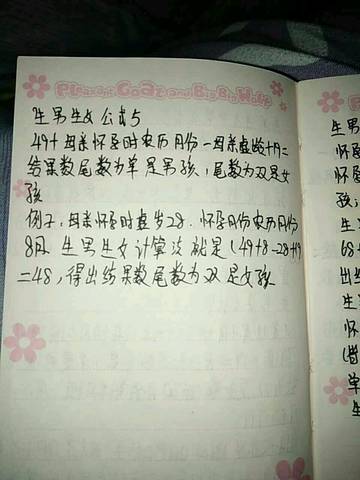 Pleasant Goat and Big Big Wolf
生男生女公式5
49+母亲怀孕时农历月份-母亲虚龄+19=
结果数尾数为单是男孩,尾数为双是女
孩
例子,母亲怀孕时虚岁28.怀孕月份农历月份
8月.生男生女计算法就是(49+8-28+19
=48,得出结果数尾数为双是女孩
生男
怀孕
孩;
生
68+
出结
生
怀
单
生